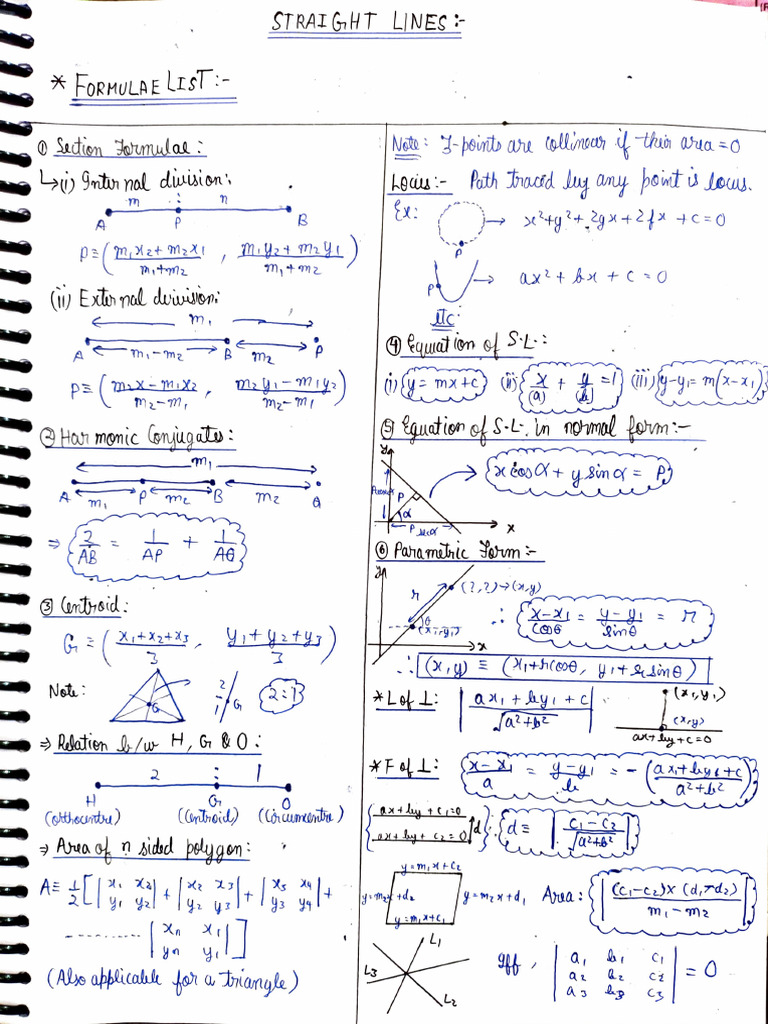 STRAIGHT LINES:-
* FORMULAE LIST:-
① Section Formulae:
↳(i) Internal division:
m n
A P B
P ≡ (m₁x₂+m₂x₁/m₁+m₂ , m₁y₂+m₂y₁/m₁+m₂)
(ii) External division:
m₁
A m₁-m₂ B m₂ P
P ≡ (m₂x-m₁x₂/m₂-m₁ , m₂y₁-m₁y₂/m₂-m₁)
② Harmonic Conjugates:
m₁
A P B Q
m₁ m₂ m₂
⇒ 2/AB = 1/AP + 1/AQ
③ Centroid:
G ≡ (x₁+x₂+x₃/3 , y₁+y₂+y₃/3)
Note:
G
2
1 G
2:1
⇒ Relation b/w H, G & O:
2 1
H G O
(orthocentre) (centroid) (circumcentre)
⇒ Area of n sided polygon:
A ≡ 1/2 [|x₁ x₂ y₁ y₂| + |x₂ x₃ y₂ y₃| + |x₃ x₄ y₃ y₄| +
--------- |xn x₁ yn y₁|]
(Also applicable for a triangle)
Note: 3-points are collinear if their area = 0
Locus:- Path traced by any point is locus.
Ex: P → x²+y²+2gx+2fx+c=0
P → ax²+bx+c=0
etc:
④ Equation of S.L.:
(i) y = mx+c (ii) x/(a) + y/(b) = 1 (iii) y-y₁ = m(x-x₁)
⑤ Equation of S.L. in normal form:-
y
P α
x cosα + y sinα = P
P secα x
⑥ Parametric Form:-
y
r (?,?)→(x,y)
θ
(x₁,y₁)
x
∴ x-x₁/cosθ = y-y₁/sinθ = r
∴ (x,y) ≡ (x₁+rcosθ, y₁+rsinθ)
* L of ⊥: |ax₁+by₁+c/√a²+b²|
(x₁,y₁)
(x,y)
ax+by+c=0
* F of ⊥: x-x₁/a = y-y₁/b = -(ax₁+by₁+c/a²+b²)
ax+by+c₁=0
ax+by+c₂=0 d ∴ d ≡ |c₁-c₂/√a²+b²|
y=m₁x+c₂
y=m₂x+d₂ y=m₂x+d₁
y=m₁x+c₁
Area: |(c₁-c₂)x(d₁-d₂)/m₁-m₂|
L₁
L₃
L₂
Iff, |a₁ b₁ c₁
a₂ b₂ c₂
a₃ b₃ c₃| = 0